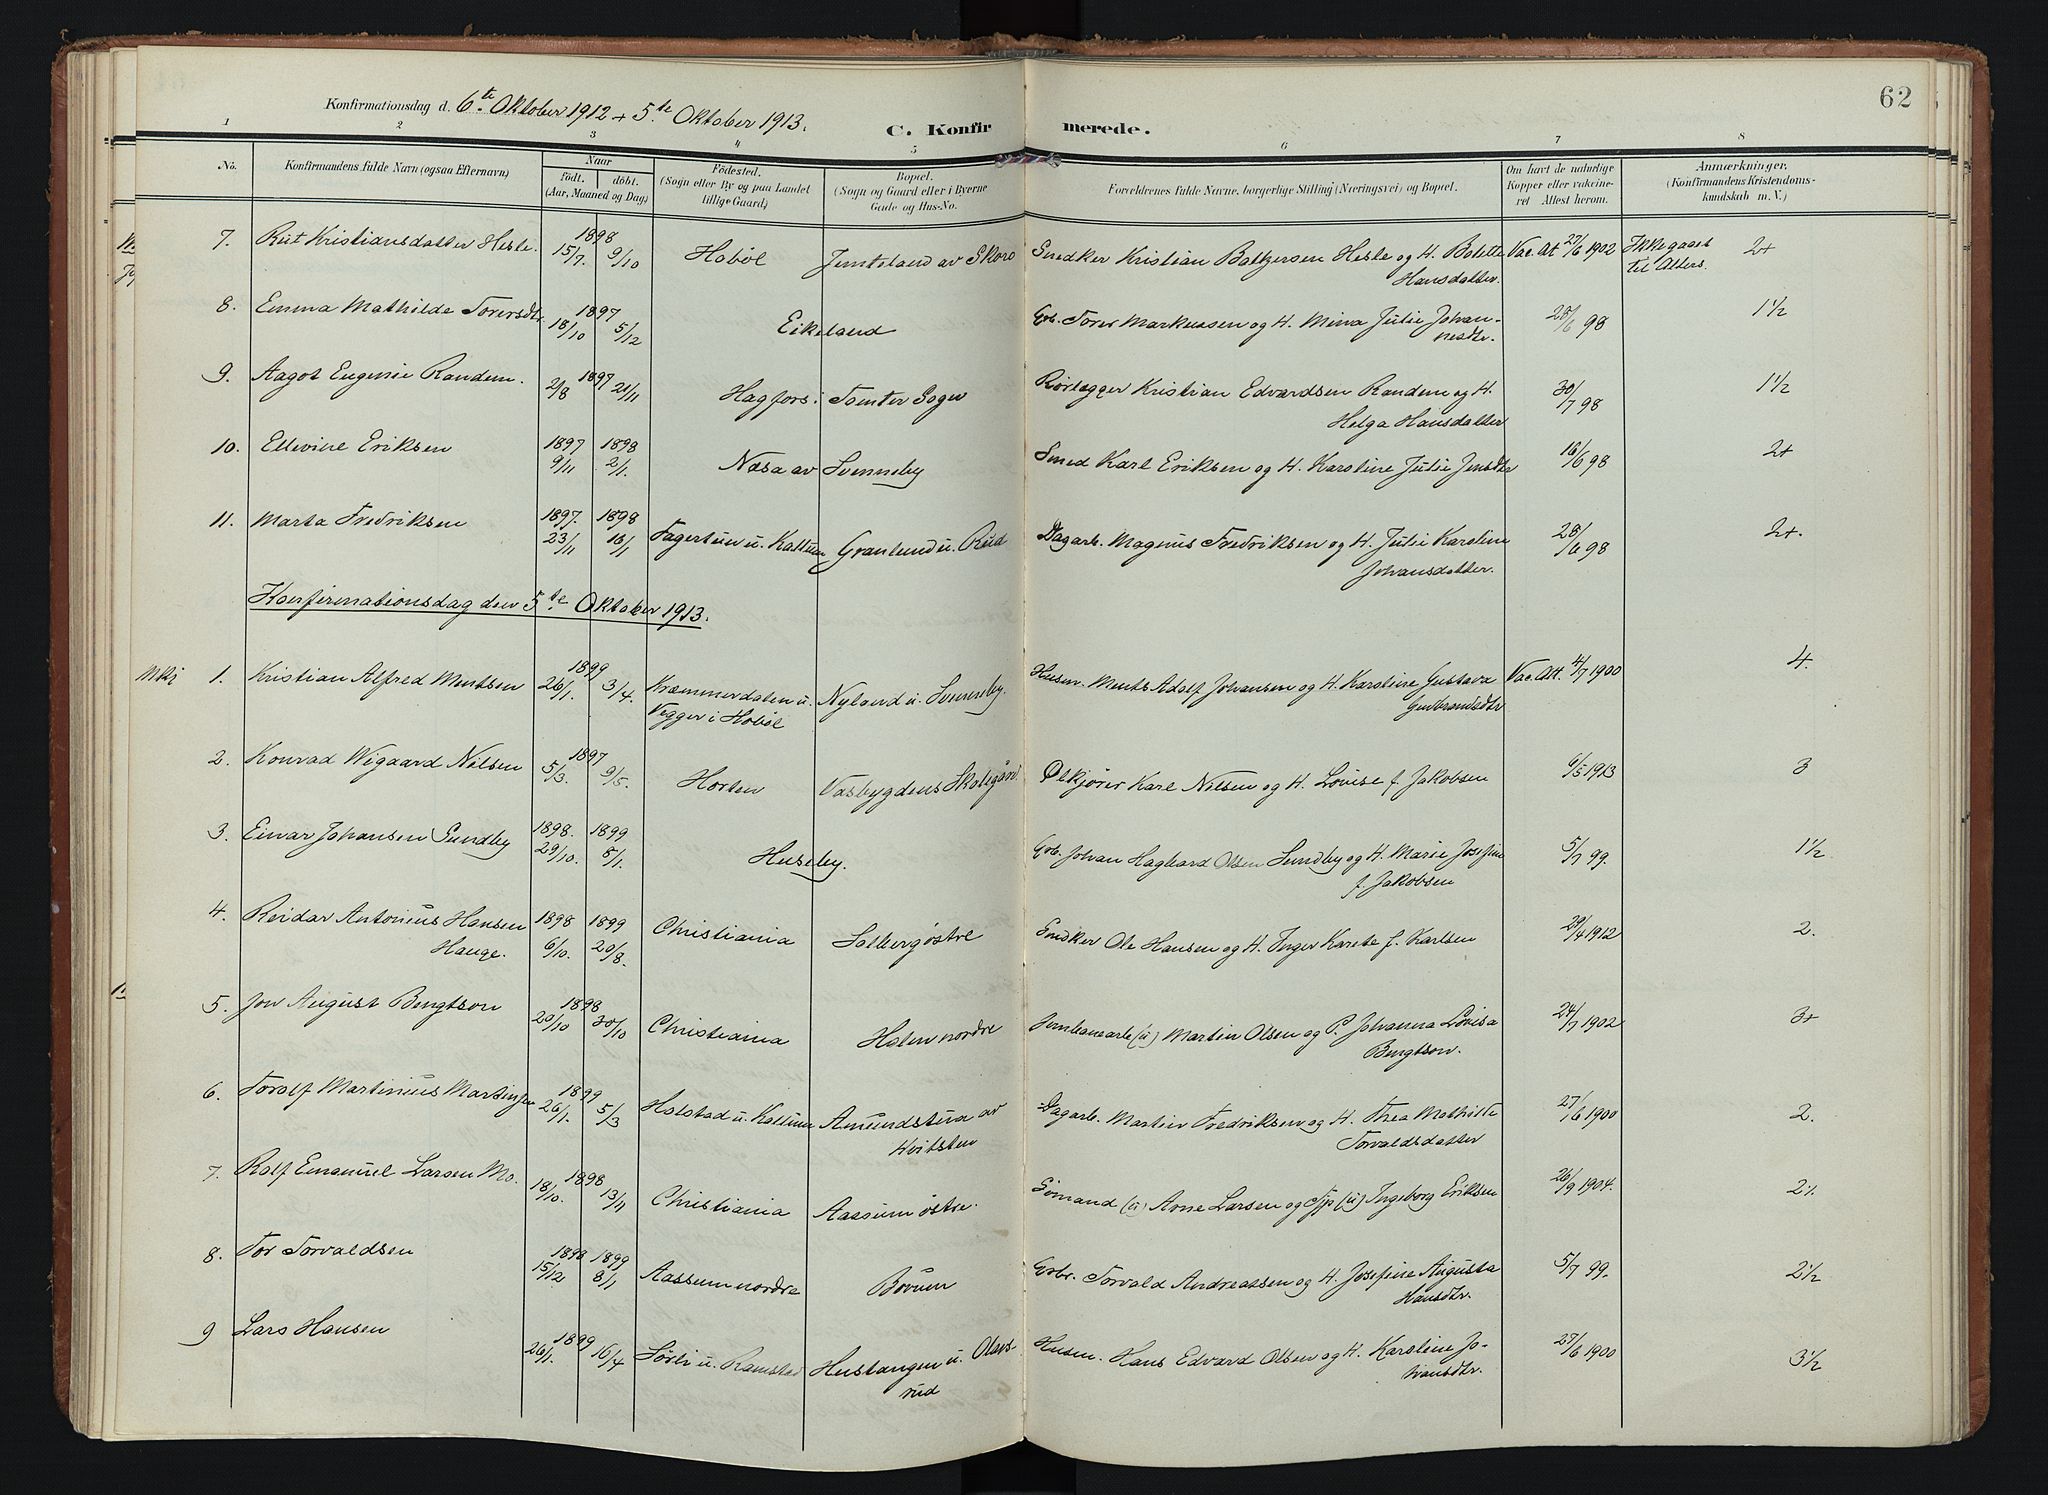 62
Konfirmationsdag d. 6te Oktober 1912 + 5te Oktober 1913.
C. Konfirmerede.
1 2 3 4 5 6 7 8
No.
Konfirmandens fulde Navn (ogsaa Efternavn)
Naar
født. døbt.
(Aar, Maaned og Dag)
Fødested.
(Sogn eller By og paa Landet
tillige Gaard)
Bopæl.
(Sogn og Gaard eller i Byerne
Gade og Hus-No.
Forældrenes fulde Navne, borgerlige Stilling (Næringsvei) og Bopæl.
Om havt de naturlige
Kopper eller vakcine-
ret Attest herom.
Anmærkninger.
(Konfirmandens Kristendoms-
kundskab m. V.)
7. Rut Kristiansdatter Hesle. 1898 15/7. 9/10 Hobøl Jemteland av Skoro Snedker Kristian Baltzersen Hesle og H. Bolette Vac. At 27/6 1902 Ikke gaaet 2+
Hansdatter. til Alters.
8. Emma Mathilde Torersdtr. 1897 18/10 5/12 Eikeland Grb. Torer Markussen og H. Mina Julie Johan- 28/6 98 1 1/2
nesdtr.
9. Aagot Eugenie Randem. 1897 2/8 21/11 Hagfors i Tomter Sogn Rørlægger Kristian Edvardsen Randem og H. 30/7 98 1 1/2
Helga Hansdatter
10. Ellevine Eriksen 1897 9/11 1898 2/1. Næsa av Svenneby Smed Karl Eriksen og H. Karoline Julie Jensdtr 16/6 98 2+
11. Marta Fredriksen 1897. 23/11 1898 16/1 Fagertun u. Kattum Granlund u. Rud Dagarb. Magnus Fredriksen og H. Julie Karoline 28/6 98 2+.
Johansdatter.
Konfirmationsdag den 5te Oktober 1913.
1. Kristian Alfred Mentsen 1899 26/1. 3/4. Kræmmerdalen u. Nyland u. Svenneby. Husm. Ments Adolf Johansen og H. Karoline Gustava Vac. Att. 4/7 1900 4.
Vegger i Hobøl Gudbrandsdtr
2. Konrad Wigaard Nilsen 1897 5/3. 9/5. Horten Vasbygdens Skolegård Ølkjører Karl Nilsen og H. Lovise f. Jakobsen 6/5 1913 3
3. Einar Johansen Sundby 1898. 29/10. 1899 8/1. Huseby. Grb. Johan Hagbard Olsen Sundby og H. Marie Josefine 5/7 99. 1 1/2.
f. Jakobsen
4. Reidar Antonius Hansen 1898 6/10. 1899 20/8. Christiania Solberg østre Snedker Ole Hansen og H. Inger Karete f. Karlsen 29/4 1912 2.
Hauge.
5. Jon August Bengtson 1898 20/10 30/10 Christiania Holen nordre Jernbanearb (u) Martin Olsen og P. Johanna Lovisa 24/7 1902 3+
Bengtson.
6. Torolf Martinius Martinsen 1899 26/1. 5/3 Holstad u. Kattum Amundstua av Dagarb. Martin Fredriksen og H. Thea Mathilde 27/6 1900 2.
Hvitsten Torvaldsdatter
7. Rolf Emanuel Larsen Mo. 1898 18/10. 13/11 Christiania Aassum østre. Sømand (u) Arne Larsen og Tjp (u) Ingeborg Eriksen 26/9 1904.
8. Tor Torvaldsen 1898 15/12 1899 8/1 Aassum nordre Bovum Grbr. Torvald Andreassen og H. Josefine Augusta 5/7 99. 2 1/2
Hansdtr.
9 Lars Hansen 1899 26/1. 16/4 Sørli u. Ramstad Hustangen u. Olavs- Husm. Hans Edvard Olsen og H. Karoline Jo- 27/6 1900 3 1/2
rud hansdtr.